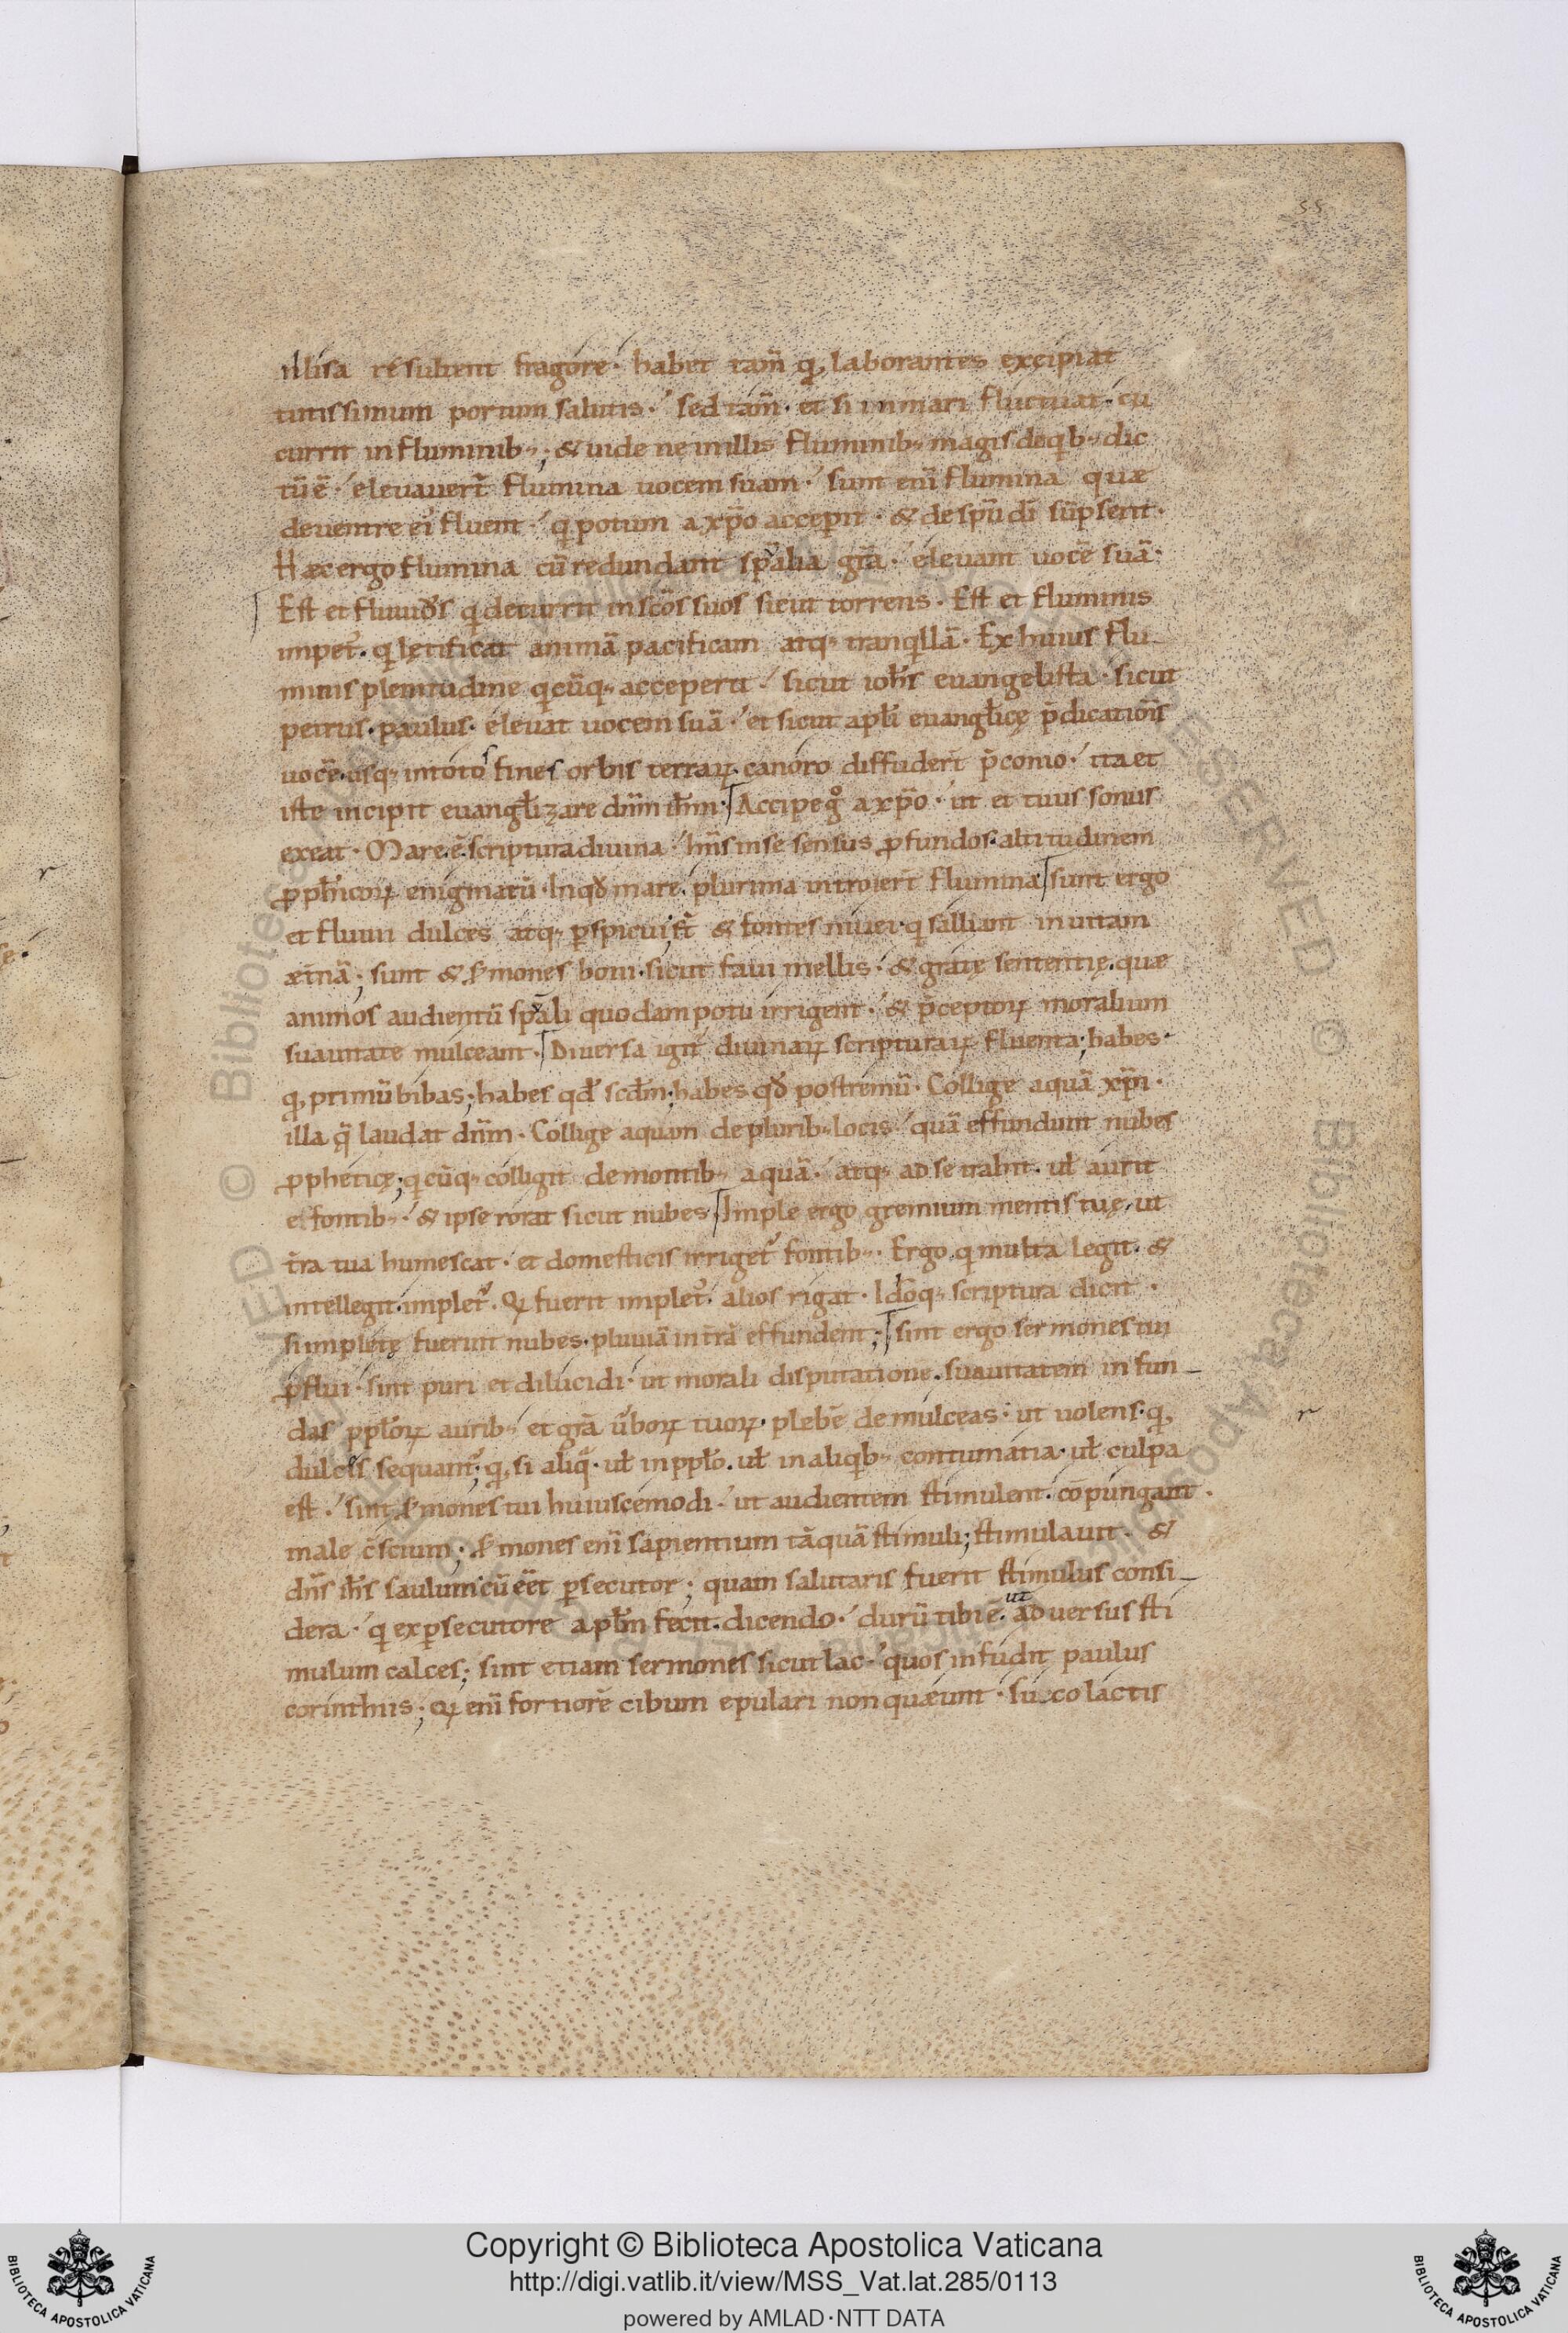 55
illisa resultent fragore· habet tam̄ q̨ laborantes excipiat
tutissimum portum salutis· sed tam̄· et si in mari fluctuat· cu
currit in fluminib;; & uide ne in illis fluminib; magis de qb; dic
tū ē· elevaver̄t flumina uocem suam· sunt enī flumina quæ
de uentre ei' fluent· q potum a xp̄o acceperit· & de sp̄u dī sūpserit·
Hæc ergo flumina cū redundant sp̄alia gr̄a· elevant uocē suā·
Est et fluuius q decurrit in scōs suos sicut torrens· Est et fluminis
impet'· q lętificat animā pacificam atq; tranqllā· Ex huius flu-
minis plenitudine qcūq; acceperit· sicut ioh̄s euangelista· sicut
petrus· paulus· elevat uocem suā· et sicut apl̄i euangl̄icę p̄dicatiōis
uocē usq; in totos fines orbis terraꝝ canoro diffuder̄t p̄conio· ita et
iste incipit euangl̄izare dn̄m ih̄m· Accipe g° a xp̄o· ut et tuus sonus
exeat· Mare ē scriptura diuina· hn̄s in se sensus ꝓfundos· altitudinem
ꝓph̄icoꝝ enigmatū· In qđ mare plurima introier̄t flumina sunt ergo
et fluuii dulces atq; ꝑspicui; st̄ & fontes niuei· q salliant in uitam
æt̄nā; sunt & s̄mones boni· sicut faui mellis· & gratę sententię· quæ
animos audientū sp̄ali quodam potu irrigent· & p̄ceptoꝝ moralium
suauitate mulceant· Diuersa igit' diuinaꝝ scripturaꝝ fluenta; habes·
q̨ primū bibas; habes qđ scd̄m; habes qđ postremū· Collige aquā xp̄i·
illa q̄ laudat dn̄m· Collige aquam de plurib; locis· quā effundunt nubes
ꝓpheticę; qcūq; colligit de montib; aquā· atq; ad se trahit· ul̄ aurit
e fontib;· & ipse rorat sicut nubes· Imple ergo gremium mentis tuę· ut
t̄ra tua humescat· et domesticis irriget' fontib;· Ergo q multa legit· &
intellegit· implet'· Qꝝ fuerit implet'· alios rigat· Idōq; scriptura dicit·
si impletę fuerint nubes· pluuiā in t̄rā effundent; sint ergo sermones tui
ꝓflui· sint puri et dilucidi· ut morali disputatione· suauitatem infun-
das ppl̄oꝝ aurib; et gr̄a ūboꝝ tuoꝝ· plebē demulceas· ut uolens· q̨
dulcis sequant'; q̨ si aliq̄· ul̄ in ppl̄o· ul̄ in aliqb; contumatia· ul̄ culpa
est· sint s̄mones tui huiuscemodi· ut audientem stimulent· cōpungant·
male c̄scium; s̄mones enī sapientium tāquā stimuli; stimulauit· &
dn̄s ih̄s saulum· cū eēt ꝑsecutor; quam salutaris fuerit stimulus consi-
dera· q ex ꝑsecutore apl̄m fecit· dicendo· durū tibi ē· ut aduersus sti
mulum calces; sint etiam sermones sicut lac· quos infudit paulus
corinthiis; Qꝝ enī fortiorē cibum epulari non quæunt· succo lactis
r
r
Copyright © Biblioteca Apostolica Vaticana
http://digi.vatlib.it/view/MSS_Vat.lat.285/0113
powered by AMLAD·NTT DATA
BIBLIOTECA APOSTOLICA VATICANA
BIBLIOTECA APOSTOLICA VATICANA